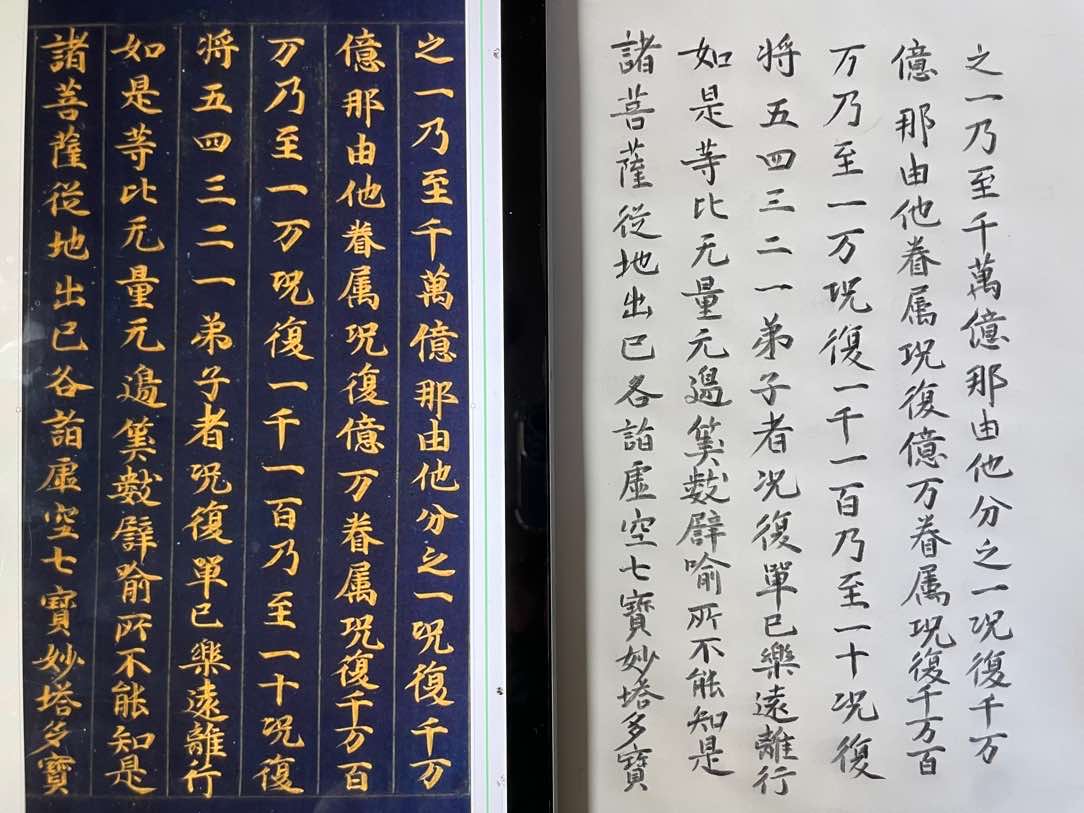 之一乃至千萬億那由他分之一况復千万
億那由他眷属况復億万眷属况復千万百
万乃至一万况復一千一百乃至一十况復
将五四三二一弟子者况復單已樂遠離行
如是等比无量无邊筭數譬喻所不能知是
諸菩薩從地出已各詣虛空七寶妙塔多寶
之一乃至千萬億那由他分之一况復千万
億那由他眷属况復億万眷属况復千万百
万乃至一万况復一千一百乃至一十况復
将五四三二一弟子者况復單已樂遠離行
如是等比无量无邊筭數譬喻所不能知是
諸菩薩從地出已各詣虛空七寶妙塔多寶